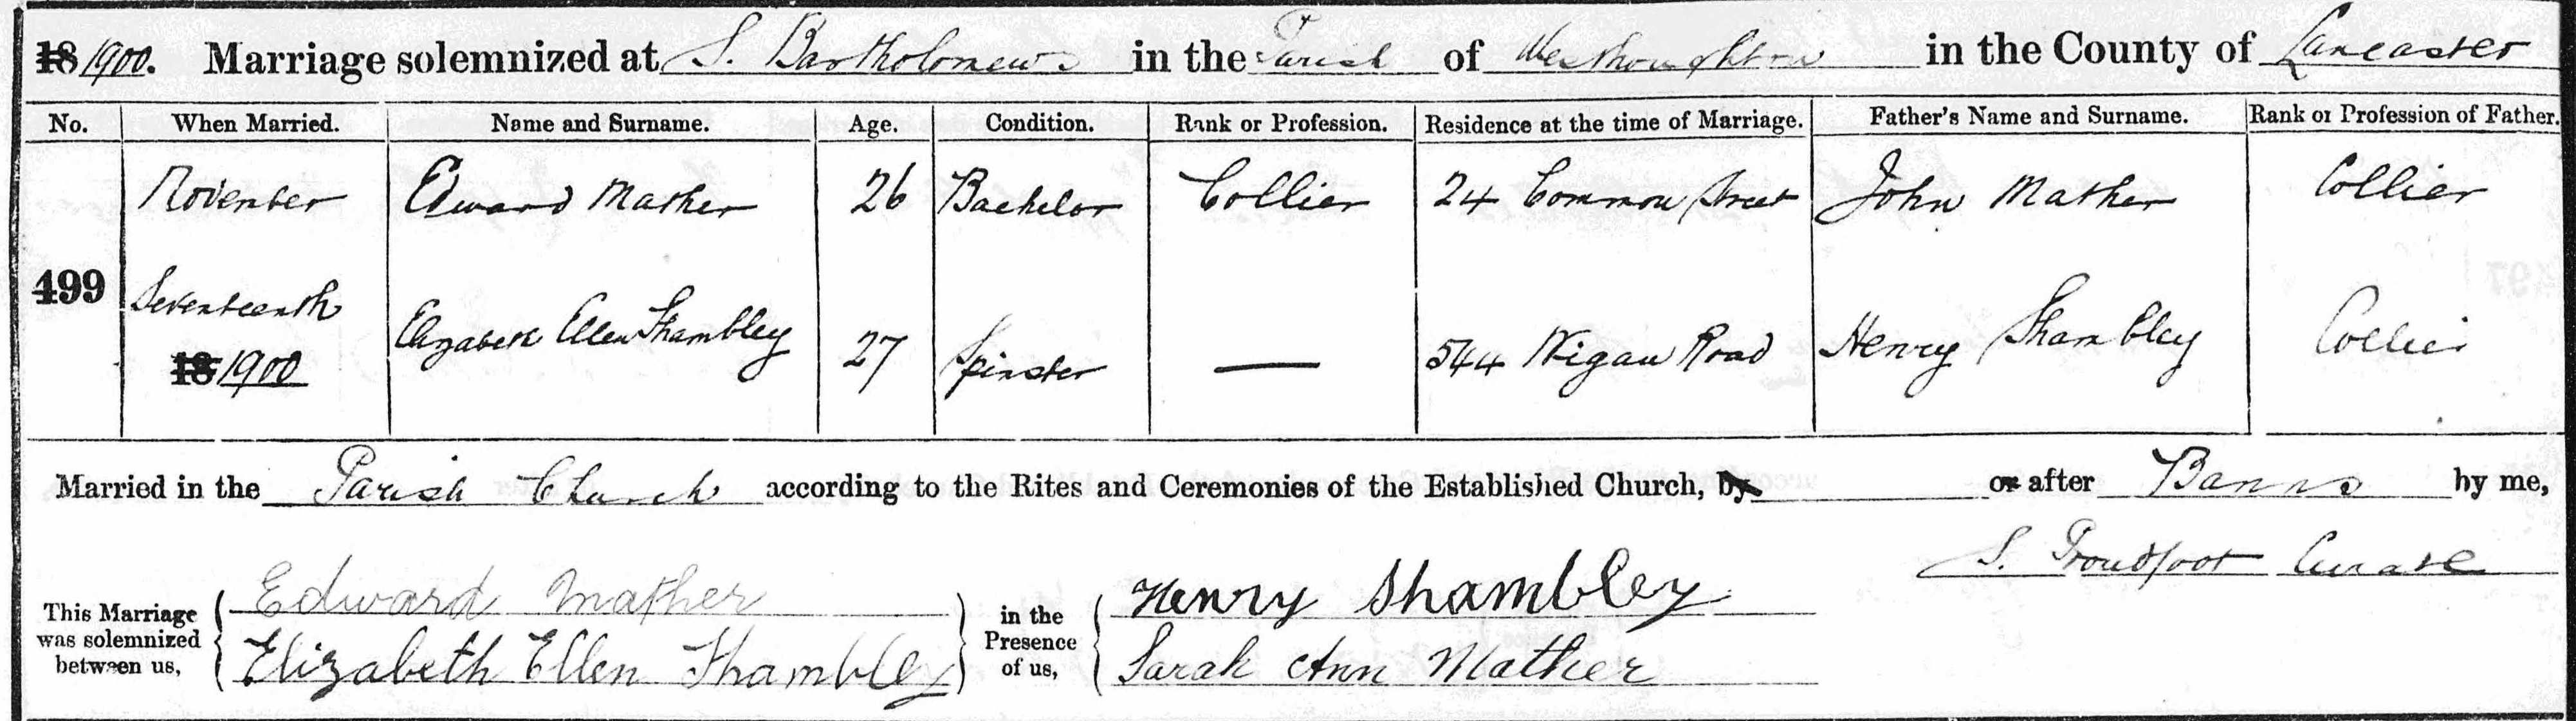 18 1900. Marriage solemnized at S. Bartholomews in the Parish of Westhoughton in the County of Lancaster
No. When Married. Name and Surname. Age. Condition. Rank or Profession. Residence at the time of Marriage. Father's Name and Surname. Rank or Profession of Father.
November Edward Mather 26 Bachelor Collier 24 Common Street John Mather Collier
499 Seventeenth
18 1900 Elizabeth Ellen Shambley 27 Spinster — 544 Wigan Road Henry Shambley Collier
Married in the Parish Church according to the Rites and Ceremonies of the Established Church, by or after Banns by me,
S. Proudfoot Curate
This Marriage was solemnized between us, Edward Mather in the Presence of us, Henry Shambley
Elizabeth Ellen Shambley Sarah Ann Mather